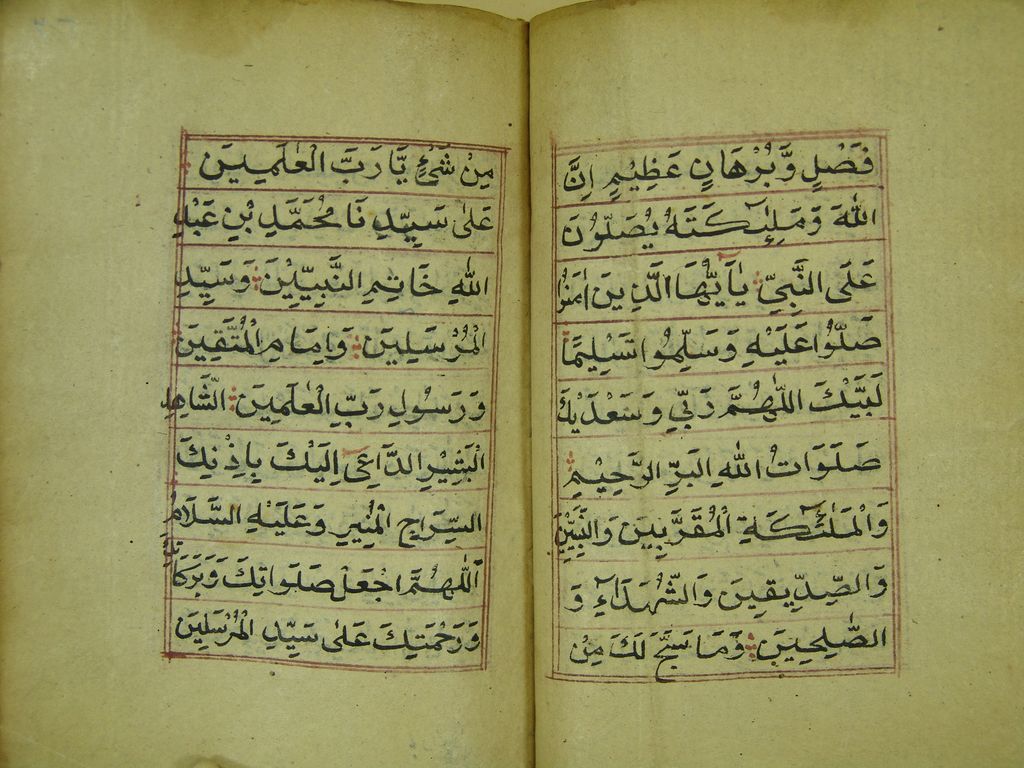 فَضْلٍ وَّبُرْهَانٍ عَظِيْمٍ اِنَّ
اللّٰهَ وَمَلٰٓئِكَتَهٗ يُصَلُّوْنَ
عَلَى النَّبِيِّ يٰٓاَيُّهَا الَّذِيْنَ اٰمَنُوْا
صَلُّوْا عَلَيْهِ وَسَلِّمُوْا تَسْلِيْمًا
لَبَّيْكَ اللّٰهُمَّ رَبِّيْ وَسَعْدَيْكَ
صَلَوَاتُ اللّٰهِ البَرِّ الرَّحِيْمِ
وَالْمَلٰٓئِكَةِ الْمُقَرَّبِيْنَ وَالنَّبِيّٖنَ
وَالصِّدِّيْقِيْنَ وَالشُّهَدَآءِ وَ
الصّٰلِحِيْنَ وَمَا سَبَّحَ لَكَ مِنْ
مِنْ شَيْءٍ يَّا رَبَّ الْعٰلَمِيْنَ
عَلٰى سَيِّدِنَا مُحَمَّدِ بْنِ عَبْدِ
اللّٰهِ خَاتِمِ النَّبِيِّيْنَ وَسَيِّدِ
الْمُرْسَلِيْنَ وَاِمَامِ الْمُتَّقِيْنَ
وَرَسُوْلِ رَبِّ الْعٰلَمِيْنَ الشَّاهِدِ
الْبَشِيْرِ الدَّاعِيْ اِلَيْكَ بِاِذْنِكَ
السِّرَاجِ الْمُنِيْرِ وَعَلَيْهِ السَّلَامُ
اَللّٰهُمَّ اجْعَلْ صَلَوَاتِكَ وَبَرَكَاتِكَ
وَرَحْمَتِكَ عَلٰى سَيِّدِ الْمُرْسَلِيْنَ